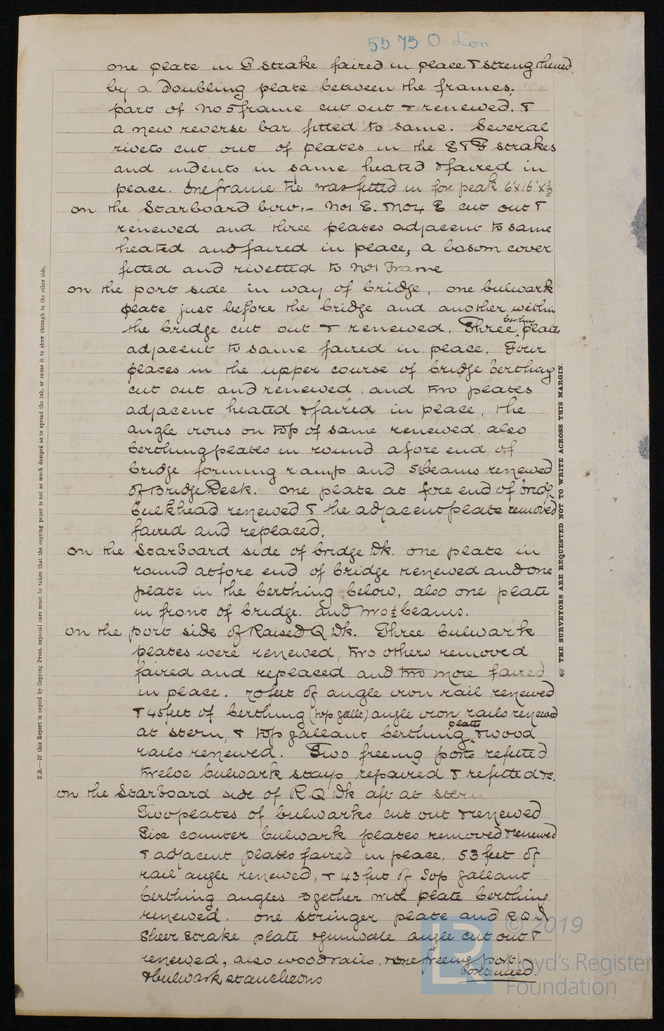 55750 Lon
one plate in G strake faired in place & strengthened
by a doubling plate between the frames.
part of No 5 frame cut out & renewed. &
a new reverse bar fitted to same. Several
rivets cut out of plates in the E & F strakes
and indents in same heated & faired in
peace. One frame tie was fitted in fore peak 6'x16"x½
on the Starboard bow:- No1 E. No4 E cut out &
renewed and three plates adjacent to same
heated and faired in peace, a bosom cover
fitted and rivetted to No1 Frame
on the port side in way of bridge, one bulwark
plate just before the bridge and another within
the bridge cut out & renewed. Three berthing plates
adjacent to same faired in peace. Four
plates in the upper course of bridge berthing
cut out and renewed, and two plates
adjacent heated & faired in peace, the
angle irons on top of same renewed, also
berthing plates in round afore end of
bridge forming ramp and 5½ beams renewed
of Bridge Deck. One plate at fore end of bridge
bulkhead renewed & the adjacent plate removed
faired and replaced.
on the Starboard side of bridge Dk. one plate in
round at fore end of bridge renewed and one
plate in the berthing below, also one plate
in front of bridge. and two ½ beams.
on the port side of Raised Q Dk. Three bulwark
plates were renewed, two others removed
faired and replaced and two more faired
in place. 70 feet of angle iron rail renewed
& 45 feet of berthing (top gallt) angle iron rails renewed
at stern, & top galleant berthing plate & wood
rails renewed. Two freeing ports refitted
twelve bulwark stays repaired & refitted &c.
on the Starboard side of R.Q Dk aft at stern
Two plates of bulwarks cut out & renewed
Six counter bulwark plates removed & renewed
& adjacent plates faired in peace, 53 feet of
rail angle renewed, & 43 feet of Top galleant
berthing angles together with plate berthing
renewed. one stringer plate and R.Q.D
Sheer strake plate & gunwale angle cut out &
renewed, also wood rails. one freeing port
& bulwark stancheons
continued
N.B.—If this Report is copied by Copying Press, especial care must be taken that the copying paper is not so much damped as to spread the ink, or cause it to show through to the other side.
THE SURVEYORS ARE REQUESTED NOT TO WRITE ACROSS THIS MARGIN.
© 2019
Lloyd's Register
Foundation